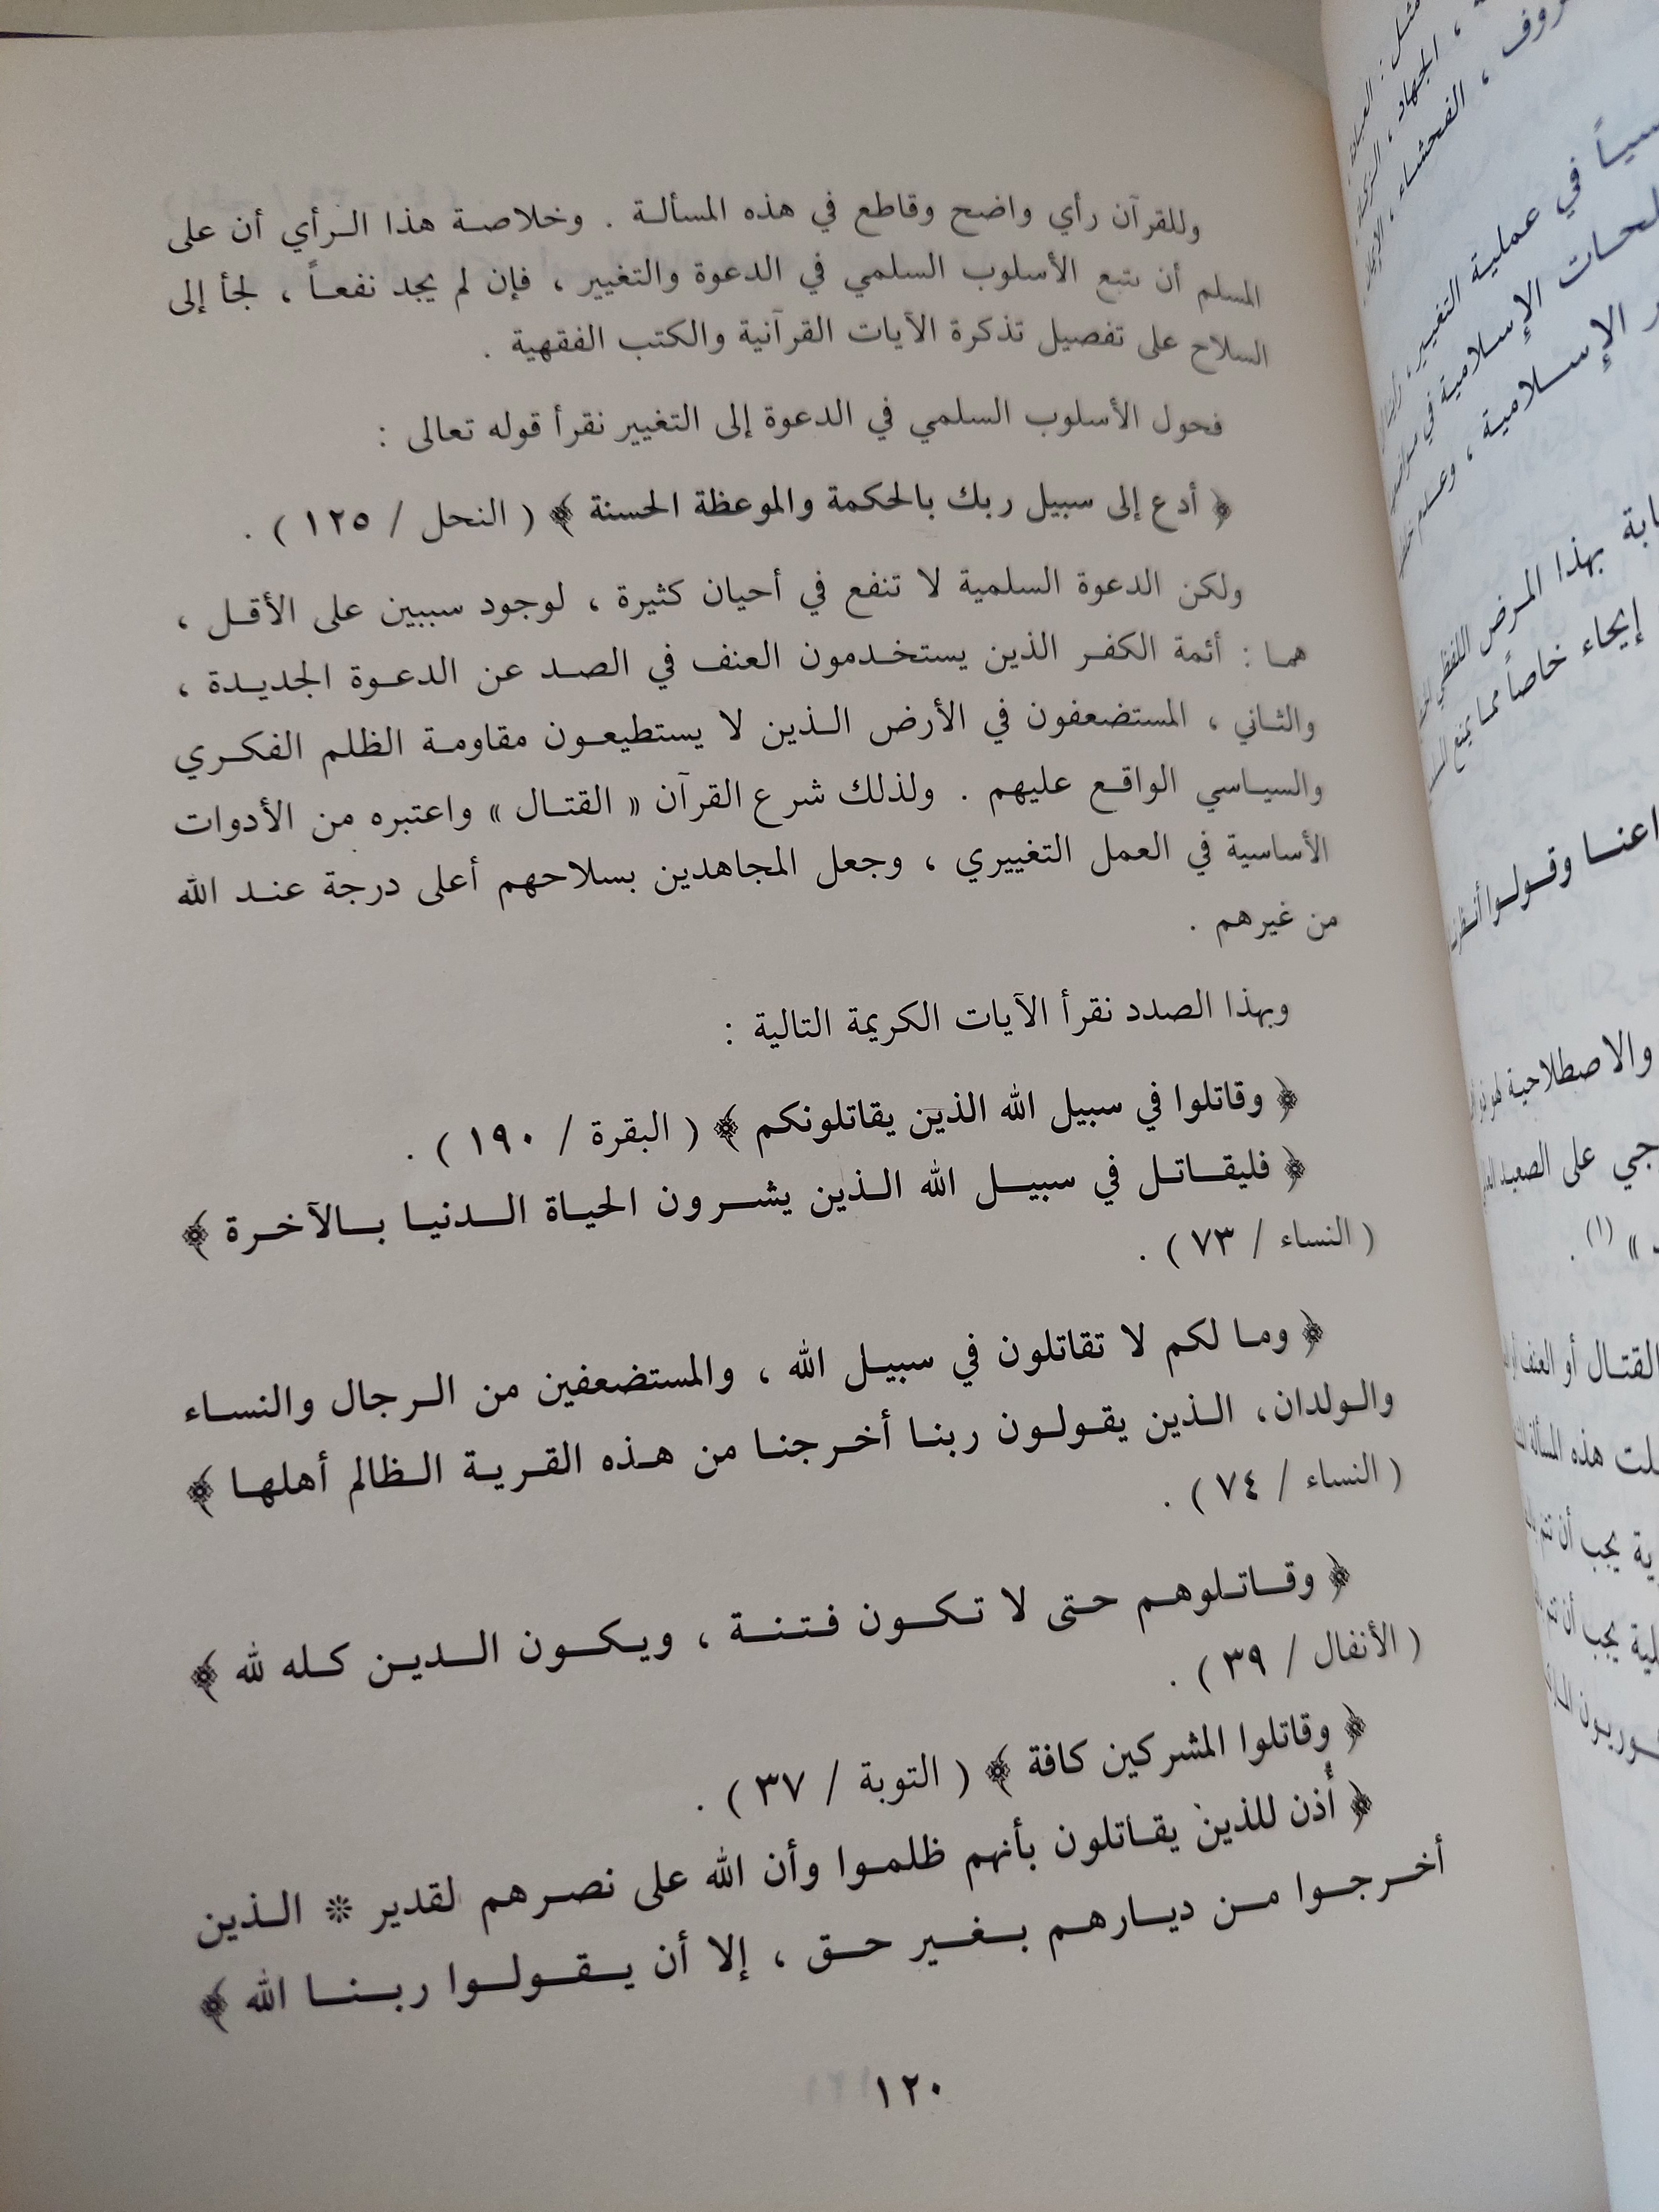 وللقرآن رأي واضح وقاطع في هذه المسألة . وخلاصة هذا الرأي أن على
المسلم أن يتبع الأسلوب السلمي في الدعوة والتغيير ، فإن لم يجد نفعاً ، لجأ إلى
السلاح على تفصيل تذكرة الآيات القرآنية والكتب الفقهية .
فحول الأسلوب السلمي في الدعوة إلى التغيير نقرأ قوله تعالى :
﴿ أدع إلى سبيل ربك بالحكمة والموعظة الحسنة ﴾ ( النحل / ١٢٥ ) .
ولكن الدعوة السلمية لا تنفع في أحيان كثيرة ، لوجود سببين على الأقل ،
هما : أئمة الكفر الذين يستخدمون العنف في الصد عن الدعوة الجديدة ،
والثاني ، المستضعفون في الأرض الذين لا يستطيعون مقاومة الظلم الفكري
والسياسي الواقع عليهم . ولذلك شرع القرآن « القتال » واعتبره من الأدوات
الأساسية في العمل التغييري ، وجعل المجاهدين بسلاحهم أعلى درجة عند الله
من غيرهم .
وبهذا الصدد نقرأ الآيات الكريمة التالية :
﴿ وقاتلوا في سبيل الله الذين يقاتلونكم ﴾ ( البقرة / ١٩٠ ) .
﴿ فليقاتل في سبيل الله الذين يشرون الحياة الدنيا بالآخرة ﴾
( النساء / ٧٣ ) .
﴿ وما لكم لا تقاتلون في سبيل الله ، والمستضعفين من الرجال والنساء
والولدان، الذين يقولون ربنا أخرجنا من هذه القرية الظالم أهلها ﴾
( النساء / ٧٤ ) .
﴿ وقاتلوهم حتى لا تكون فتنة ، ويكون الدين كله لله ﴾
( الأنفال / ٣٩ ) .
﴿ وقاتلوا المشركين كافة ﴾ ( التوبة / ٣٧ ) .
﴿ أُذن للذين يقاتلون بأنهم ظلموا وأن الله على نصرهم لقدير * الذين
أخرجوا من ديارهم بغير حق ، إلا أن يقولوا ربنا الله ﴾
١٢٠
الجهاد ،
، الفحشاء ،
في عملية التغيير ،
الإسلامية في
الإسلامية ،
بهذا المرض اللفظي
إيحاء خاصاً مما يمنع
وقولوا
والاصطلاحية
على الصعيد
» (١) .
القتال أو العنف
هذه المسألة
يجب أن تتم
يجب أن تتم